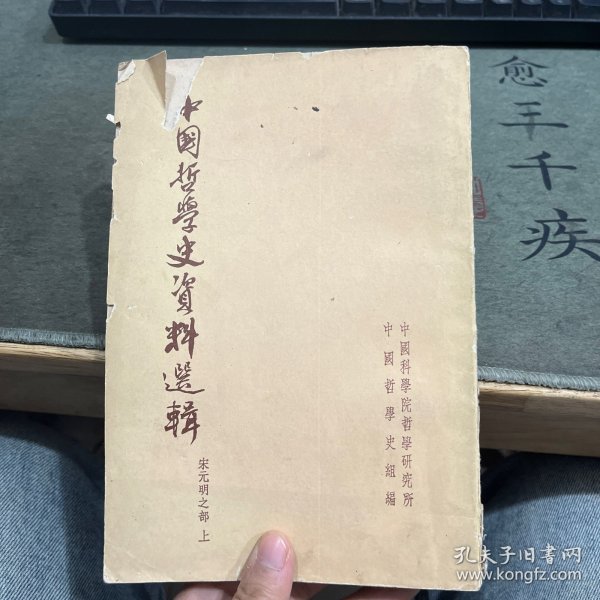 中國哲學史資料選輯
宋元明之部 上
中國科學院哲學研究所
中國哲學史組編
愈千疾
孔夫子旧书网
www.kongfz.com